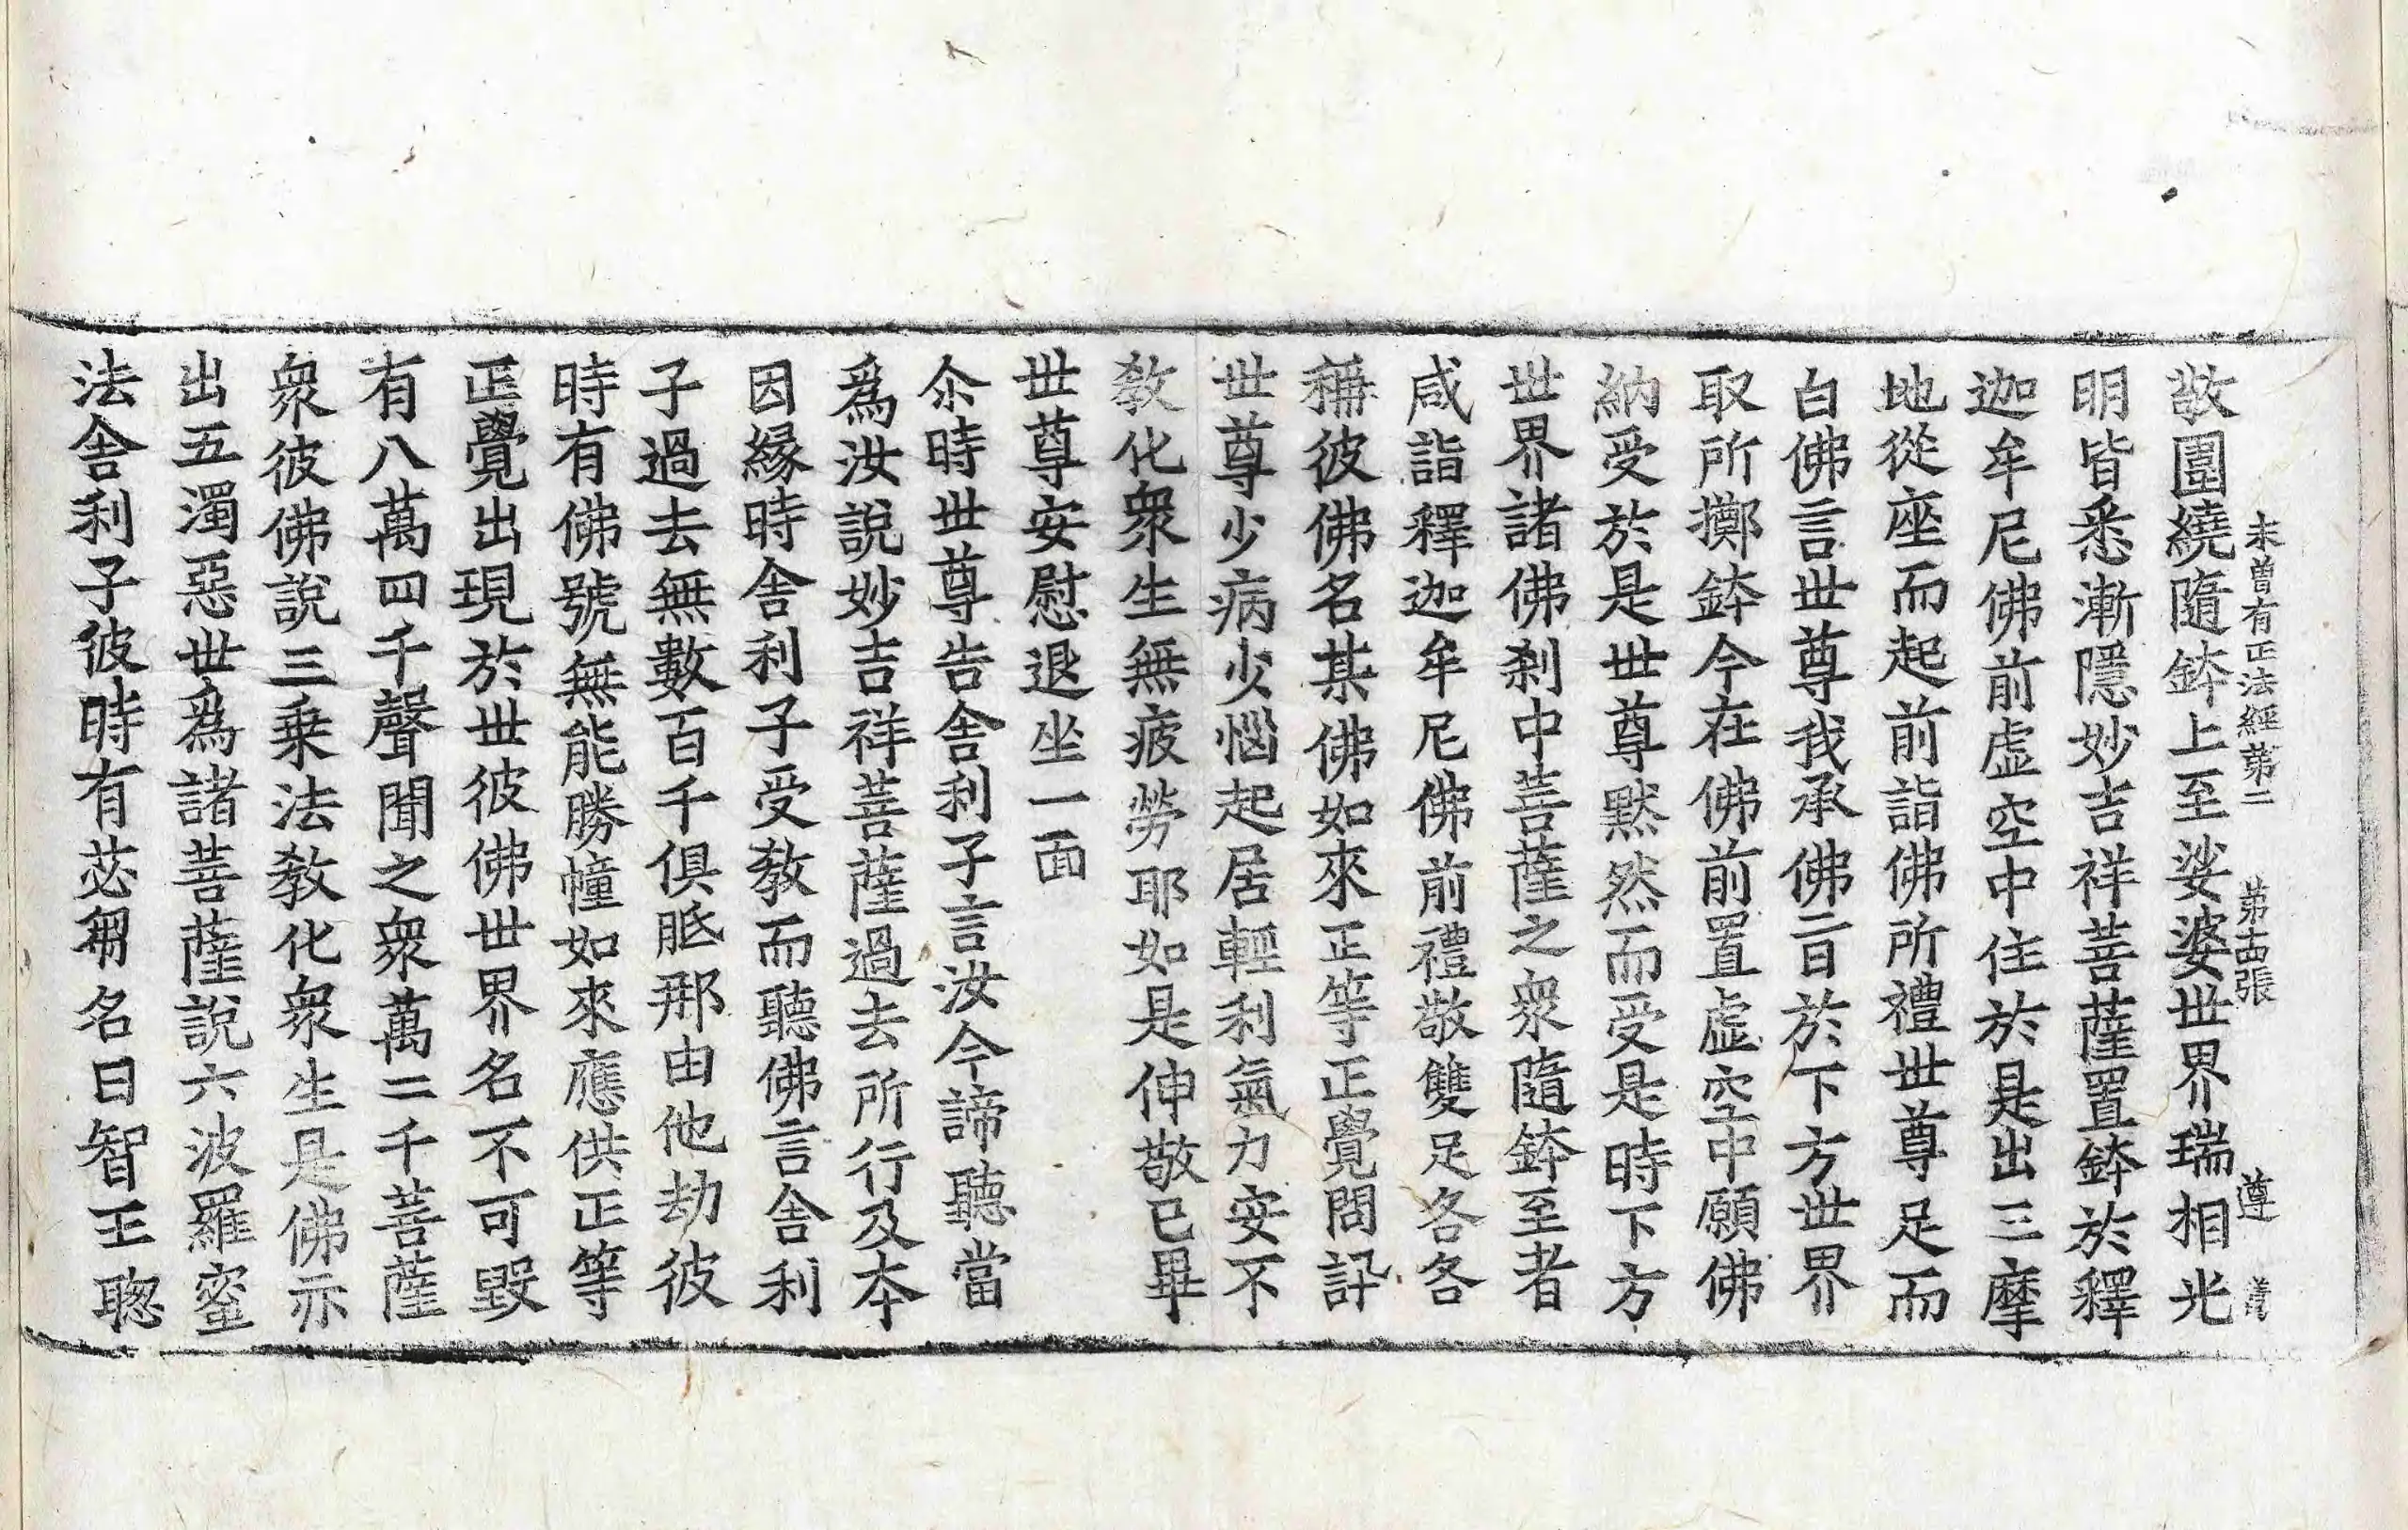 未曾有正法經第二 第古張 遵
敬圍繞隨鉢上至娑婆世界瑞相光
明皆悉漸隱妙吉祥菩薩置鉢於釋
迦牟尼佛前虛空中住於是出三摩
地從座而起前詣佛所禮世尊足而
白佛言世尊我承佛旨於下方世界
取所擲鉢今在佛前置虛空中願佛
納受於是世尊默然而受是時下方
世界諸佛刹中菩薩之衆隨鉢至者
咸詣釋迦牟尼佛前禮敬雙足各各
稱彼佛名某佛如來正等正覺問訊
世尊少病少惱起居輕利氣力安不
敎化衆生無疲勞耶如是伸敬已畢
世尊安慰退坐一面
尒時世尊告舍利子言汝今諦聽當
爲汝說妙吉祥菩薩過去所行及本
因緣時舍利子受敎而聽佛言舍利
子過去無數百千俱胝那由他劫彼
時有佛號無能勝幢如來應供正等
正覺出現於世彼佛世界名不可毀
有八萬四千聲聞之衆萬二千菩薩
衆彼佛說三乗法敎化衆生是佛亦
出五濁惡世爲諸菩薩說六波羅蜜
法舍利子彼時有苾芻名曰智王聦